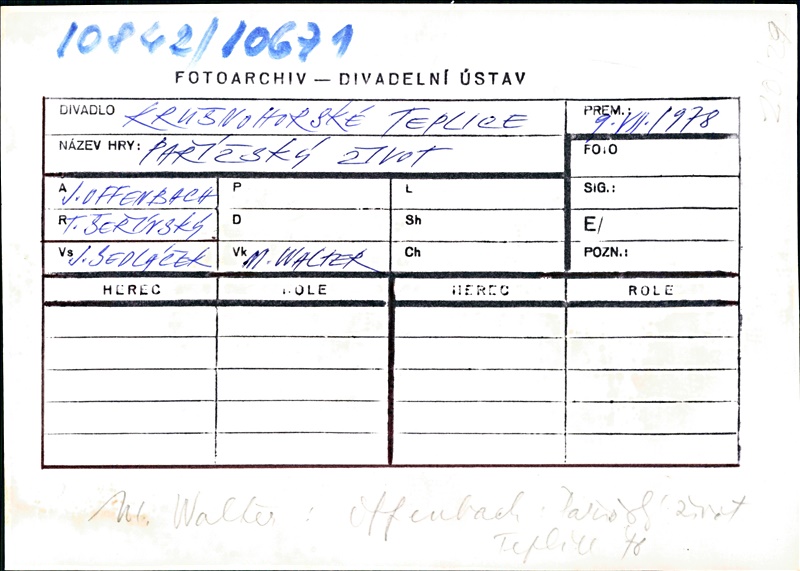 10842/10671
FOTOARCHIV — DIVADELNÍ ÚSTAV
DIVADLO KRUŠNOHORSKÉ TEPLICE PREM.: 9.VII.1978
NÁZEV HRY: PAŘÍŽSKÝ ŽIVOT FOTO
A J. OFFENBACH P L SIG.:
R T. ŠEŘÍNSKÝ D Sh E/
Vs J. SEDLÁČEK Vk M. WALTER Ch POZN.:
HEREC ROLE HEREC ROLE
M. Walter : Offenbach Pařížský život
Teplice 78
2029